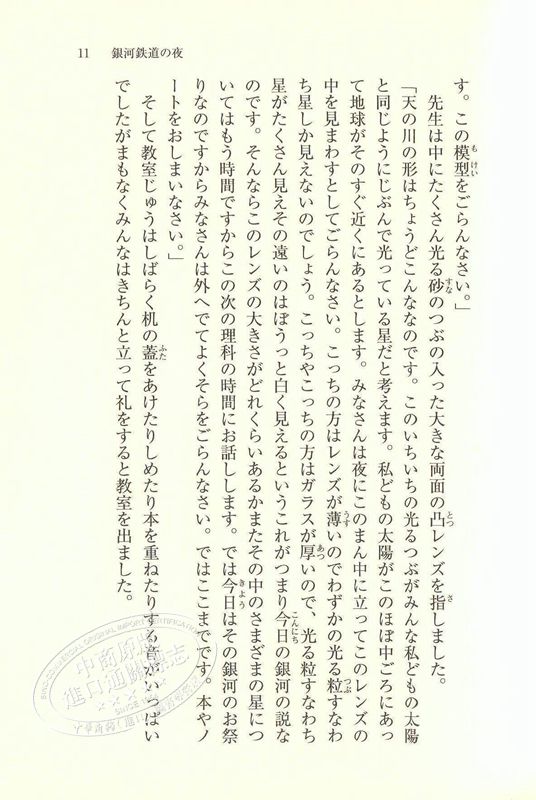 11　銀河鉄道の夜
す。この模型をごらんなさい。」
　先生は中にたくさん光る砂のつぶの入った大きな両面の凸レンズを指しました。
「天の川の形はちょうどこんななのです。このいちいちの光るつぶがみんな私どもの太陽
と同じようにじぶんで光っている星だと考えます。私どもの太陽がこのほぼ中ごろにあっ
て地球がそのすぐ近くにあるとします。みなさんは夜にこのまん中に立ってこのレンズの
中を見まわすとしてごらんなさい。こっちの方はレンズが薄いのでわずかの光る粒すなわ
ち星しか見えないのでしょう。こっちやこっちの方はガラスが厚いので、光る粒すなわち
星がたくさん見えその遠いのはぼうっと白く見えるというこれがつまり今日の銀河の説な
のです。そんならこのレンズの大きさがどれくらいあるかまたその中のさまざまの星につ
いてはもう時間ですからこの次の理科の時間にお話しします。では今日はその銀河のお祭
りなのですからみなさんは外へでてよくそらをごらんなさい。ではここまでです。本やノ
ートをおしまいなさい。」
　そして教室じゅうはしばらく机の蓋をあけたりしめたり本を重ねたりする音がいっぱい
でしたがまもなくみんなはきちんと立って礼をすると教室を出ました。